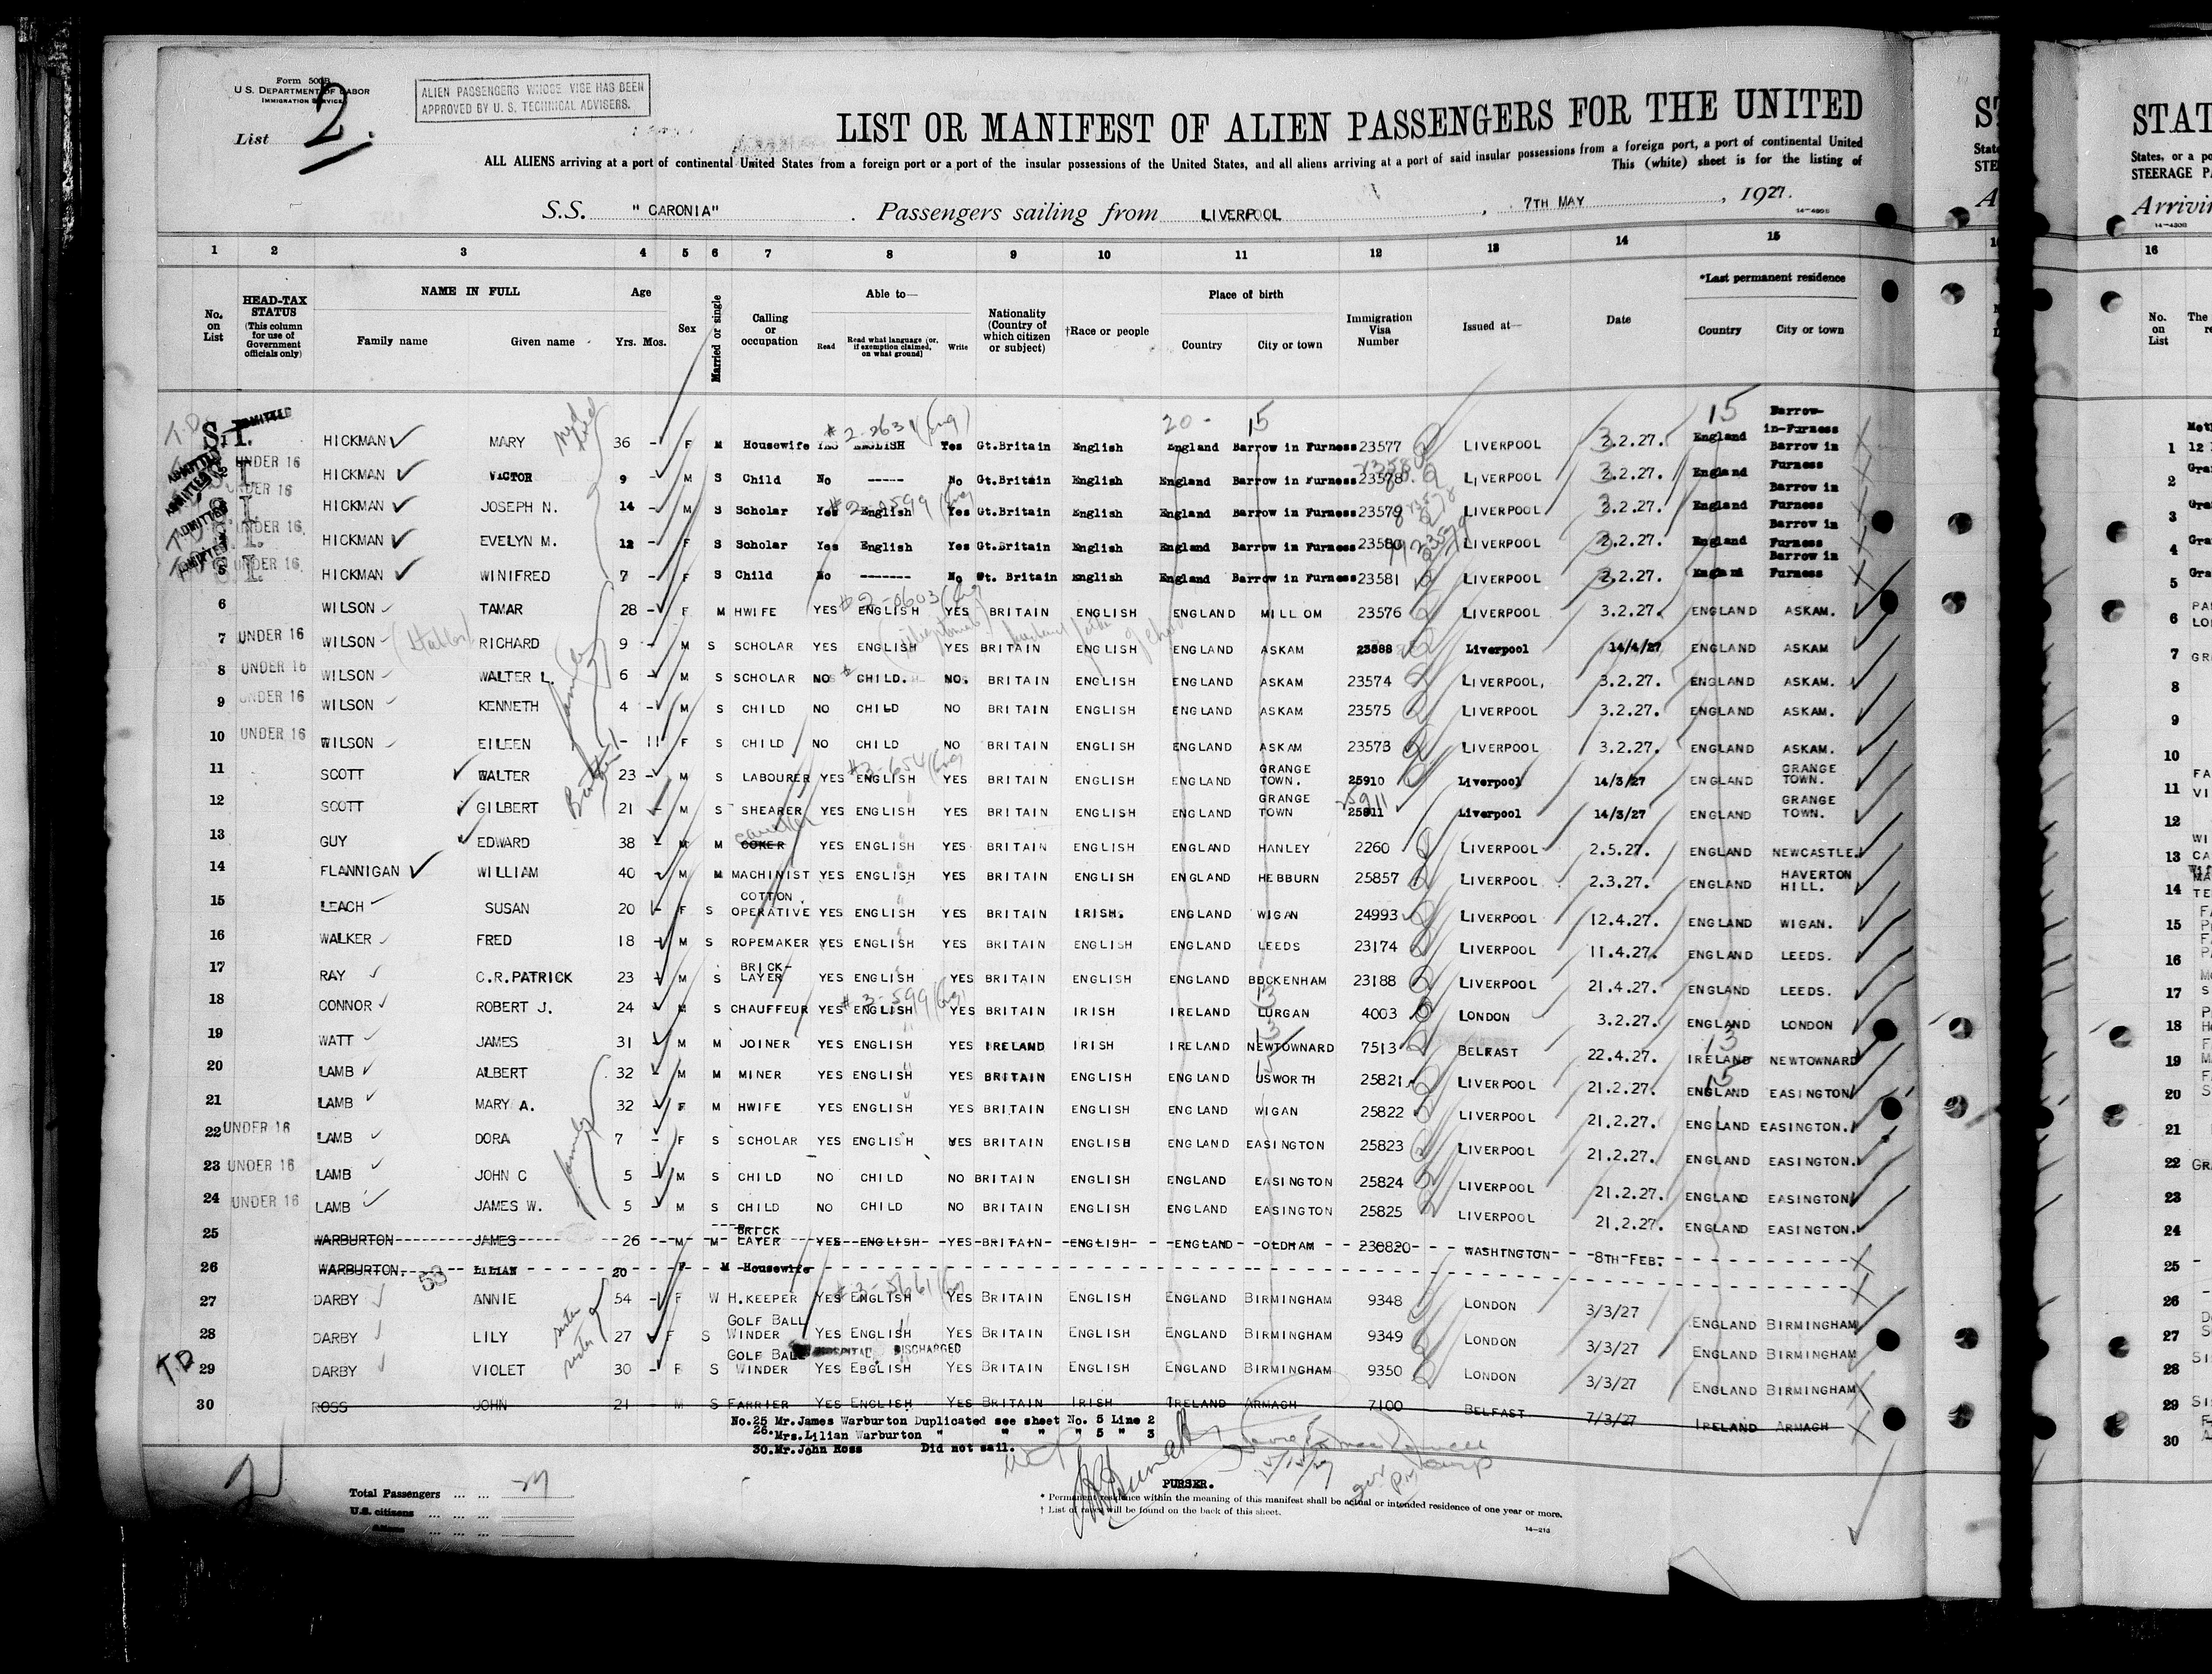 Form 500B
U.S. DEPARTMENT OF LABOR
IMMIGRATION SERVICE
List 2.
ALIEN PASSENGERS WHOSE VISE HAS BEEN
APPROVED BY U. S. TECHNICAL ADVISERS.
LIST OR MANIFEST OF ALIEN PASSENGERS FOR THE UNITED
ALL ALIENS arriving at a port of continental United States from a foreign port or a port of the insular possessions of the United States, and all aliens arriving at a port of said insular possessions from a foreign port, a port of continental United
This (white) sheet is for the listing of
S.S. "CARONIA" . Passengers sailing from LIVERPOOL , 7TH MAY , 1927.
1 2 3 4 5 6 7 8 9 10 11 12 13 14 15
No. on List
HEAD-TAX STATUS (This column for use of Government officials only)
NAME IN FULL
Family name Given name
Age
Yrs. Mos.
Sex
Married or single
Calling or occupation
Able to—
Read Read what language (or, if exemption claimed, on what ground) Write
Nationality (Country of which citizen or subject)
†Race or people
Place of birth
Country City or town
Immigration Visa Number
Issued at—
Date
*Last permanent residence
Country City or town
20- 15 15
HICKMAN MARY 36 - F M Housewife Yes ENGLISH Yes Gt.Britain English England Barrow in Furness 23577 LIVERPOOL 3.2.27. England Barrow-in-Furness
UNDER 16 HICKMAN VICTOR 9 - M S Child No ----- No Gt.Britain English England Barrow in Furness 23578 LIVERPOOL 3.2.27. England Barrow in Furness
UNDER 16 HICKMAN JOSEPH N. 14 - M S Scholar Yes English Yes Gt.Britain English England Barrow in Furness 23579 LIVERPOOL 3.2.27. England Barrow in Furness
UNDER 16 HICKMAN EVELYN M. 12 - F S Scholar Yes English Yes Gt.Britain English England Barrow in Furness 23580 LIVERPOOL 2.2.27. England Barrow in Furness
5 UNDER 16 HICKMAN WINIFRED 7 - F S Child No ------- No Gt. Britain English England Barrow in Furness 23581 LIVERPOOL 2.2.27. England Barrow in Furness
6 WILSON TAMAR 28 - F M HWIFE YES ENGLISH YES BRITAIN ENGLISH ENGLAND MILLOM 23576 LIVERPOOL 3.2.27. ENGLAND ASKAM.
7 UNDER 16 WILSON RICHARD 9 - M S SCHOLAR YES ENGLISH YES BRITAIN ENGLISH ENGLAND ASKAM 23588 Liverpool 14/4/27 ENGLAND ASKAM
8 UNDER 16 WILSON WALTER L. 6 - M S SCHOLAR NO CHILD. NO. BRITAIN ENGLISH ENGLAND ASKAM 23574 LIVERPOOL, 3.2.27. ENGLAND ASKAM.
9 UNDER 16 WILSON KENNETH 4 - M S CHILD NO CHILD NO BRITAIN ENGLISH ENGLAND ASKAM 23575 LIVERPOOL 3.2.27. ENGLAND ASKAM.
10 UNDER 16 WILSON EILEEN - 11 F S CHILD NO CHILD NO BRITAIN ENGLISH ENGLAND ASKAM 23573 LIVERPOOL 3.2.27. ENGLAND ASKAM.
11 SCOTT WALTER 23 - M S LABOURER YES ENGLISH YES BRITAIN ENGLISH ENGLAND GRANGE TOWN. 25910 Liverpool 14/3/27 ENGLAND GRANGE TOWN.
12 SCOTT GILBERT 21 - M S SHEARER YES ENGLISH YES BRITAIN ENGLISH ENGLAND GRANGE TOWN 25911 Liverpool 14/3/27 ENGLAND GRANGE TOWN.
13 GUY EDWARD 38 - M M COKER YES ENGLISH YES BRITAIN ENGLISH ENGLAND HANLEY 2260 LIVERPOOL 2.5.27. ENGLAND NEWCASTLE.
14 FLANNIGAN WILLIAM 40 - M M MACHINIST YES ENGLISH YES BRITAIN ENGLISH ENGLAND HEBBURN 25857 LIVERPOOL 2.3.27. ENGLAND HAVERTON HILL.
15 LEACH SUSAN 20 - F S COTTON OPERATIVE YES ENGLISH YES BRITAIN IRISH. ENGLAND WIGAN 24993 LIVERPOOL 12.4.27. ENGLAND WIGAN.
16 WALKER FRED 18 - M S ROPEMAKER YES ENGLISH YES BRITAIN ENGLISH ENGLAND LEEDS 23174 LIVERPOOL 11.4.27. ENGLAND LEEDS.
17 RAY C.R.PATRICK 23 - M S BRICK-LAYER YES ENGLISH YES BRITAIN ENGLISH ENGLAND BECKENHAM 23188 LIVERPOOL 21.4.27. ENGLAND LEEDS.
18 CONNOR ROBERT J. 24 - M S CHAUFFEUR YES ENGLISH YES BRITAIN IRISH IRELAND LURGAN 4003 LONDON 3.2.27. ENGLAND LONDON
19 WATT JAMES 31 - M M JOINER YES ENGLISH YES IRELAND IRISH IRELAND NEWTOWNARD 7513 BELFAST 22.4.27. IRELAND NEWTOWNARD
20 LAMB ALBERT 32 - M M MINER YES ENGLISH YES BRITAIN ENGLISH ENGLAND USWORTH 25821 LIVERPOOL 21.2.27. ENGLAND EASINGTON
21 LAMB MARY A. 32 - F M HWIFE YES ENGLISH YES BRITAIN ENGLISH ENGLAND WIGAN 25822 LIVERPOOL 21.2.27. ENGLAND EASINGTON.
22 UNDER 16 LAMB DORA 7 - F S SCHOLAR YES ENGLISH YES BRITAIN ENGLISH ENGLAND EASINGTON 25823 LIVERPOOL 21.2.27. ENGLAND EASINGTON.
23 UNDER 16 LAMB JOHN C 5 - M S CHILD NO CHILD NO BRITAIN ENGLISH ENGLAND EASINGTON 25824 LIVERPOOL 21.2.27. ENGLAND EASINGTON
24 UNDER 16 LAMB JAMES W. 5 - M S CHILD NO CHILD NO BRITAIN ENGLISH ENGLAND EASINGTON 25825 LIVERPOOL 21.2.27. ENGLAND EASINGTON.
25 WARBURTON JAMES 26 M M BRICK LAYER YES ENGLISH YES BRITAIN ENGLISH ENGLAND OLDHAM 230820 WASHINGTON 8TH FEB.
26 WARBURTON. LILIAN 20 F M Housewife
27 DARBY ANNIE 54 - F W H.KEEPER YES ENGLISH YES BRITAIN ENGLISH ENGLAND BIRMINGHAM 9348 LONDON 3/3/27 ENGLAND BIRMINGHAM
28 DARBY LILY 27 F S GOLF BALL WINDER YES ENGLISH YES BRITAIN ENGLISH ENGLAND BIRMINGHAM 9349 LONDON 3/3/27 ENGLAND BIRMINGHAM
HOSPITAL DISCHARGED
T.D 29 DARBY VIOLET 30 - F S GOLF BALL WINDER YES EBGLISH YES BRITAIN ENGLISH ENGLAND BIRMINGHAM 9350 LONDON 3/3/27 ENGLAND BIRMINGHAM
30 ROSS JOHN 21 M S FARRIER YES ENGLISH YES BRITAIN IRISH IRELAND ARMAGH 7100 BELFAST 7/3/27 IRELAND ARMAGH
No.25 Mr.James Warburton Duplicated see sheet No. 5 Line 2
26. Mrs.Lilian Warburton " " " 5 " 3
30.Mr.John Ross Did not sail.
PURSER.
Total Passengers ... ...
U.S. citizens ... ... ...
Aliens ... ... ...
* Permanent residence within the meaning of this manifest shall be actual or intended residence of one year or more.
† List of races will be found on the back of this sheet.
14—216
STAT
States, or a po
STEERAGE P
Arrivi
16
No. on List
The
1 2 3 4 5 6 7 8 9 10 11 12 13 14 15 16 17 18 19 20 21 22 23 24 25 26 27 28 29 30